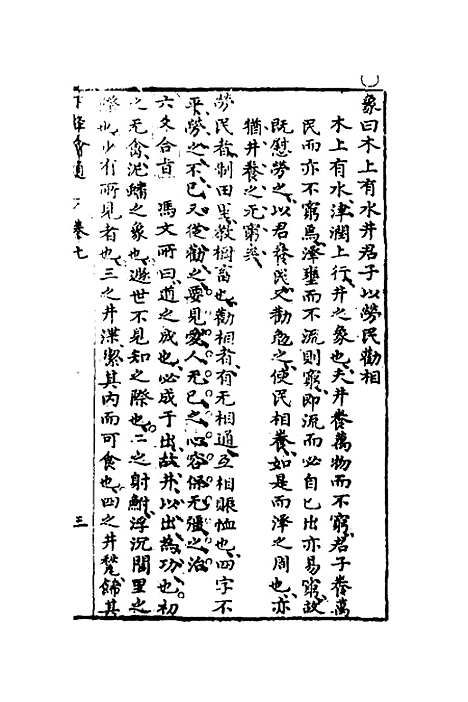 象曰木上有水井君子以勞民勸相
木上有水津潤上行井之象也夫井養萬物而不窮君子養萬
民而亦不窮焉澤壅而不流則窮即流而必自己出亦易窮故
既慰勞之以君養民又勸勉之使民相養如是而澤之周也亦
猶井養之无窮矣
勞民者制田里教樹畜也勸相者有无相通互相賑恤也四字不
平勞之不已又從勸之要見愛人无已之心容保无疆之治
六爻合旨 馮文所曰道之成也必成于出故井以出為功也初
之无禽泥蟠之象也遯世不見知之際也二之射鮒浮沉閭里之
際也少有所見者也三之井渫潔其內而可食也四之井甃飾其
會通 卷七 三